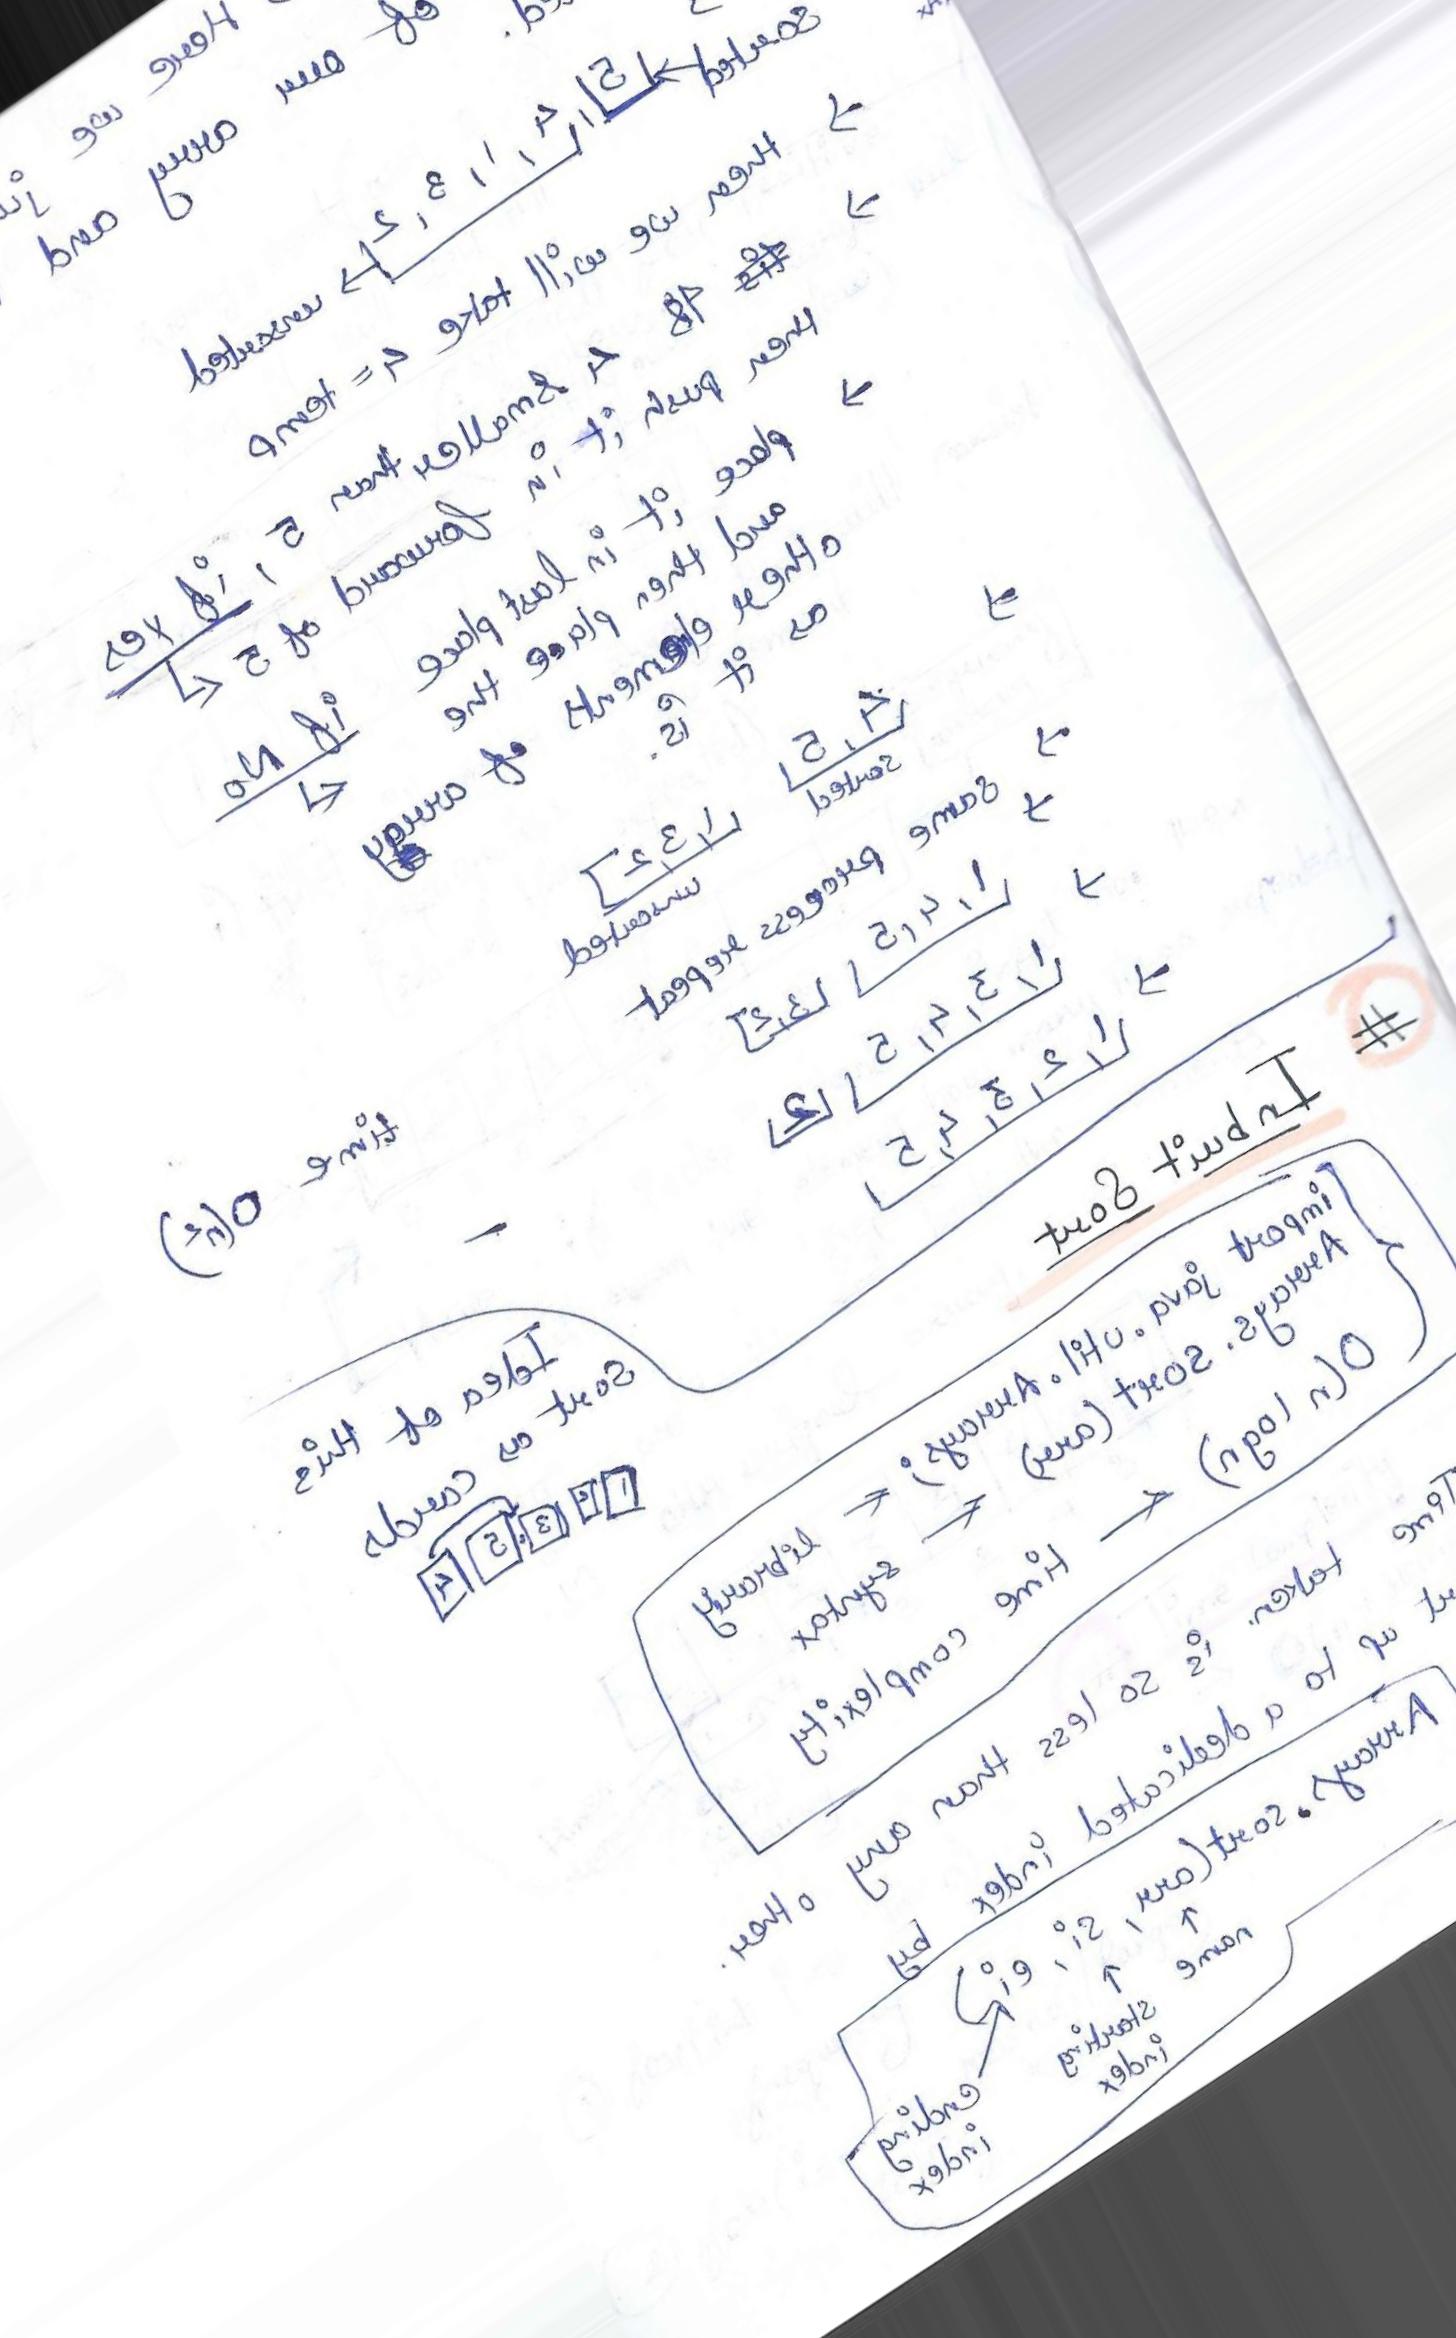 Here we
of our array and
sorted ← 5, 4, 1, 3, 2 → unsorted
→ then we will take 4 = temp
→ If 4 smaller than 5, if yes
then push it in forward of 5 ↵
→ place it in last place if no
and then place the ↵
other elements of array
as it is.
→ 4, 5 1, 3, 2
sorted unsorted
→ same process repeat
→ 1, 4, 5 3, 2
→ 1, 3, 4, 5 2
→ 1, 2, 3, 4, 5
time O(n²)
Idea of this
sort as cards
1 2 3 5 4
# Inbuilt Sort
import java.util.Arrays; ← library
Arrays.sort(arr) ← syntax
O(n logn) ← time complexity
time taken is so less than any other.
up to a dedicated index by
Arrays.sort(arr, si, ei)
name
starting
index
ending
index